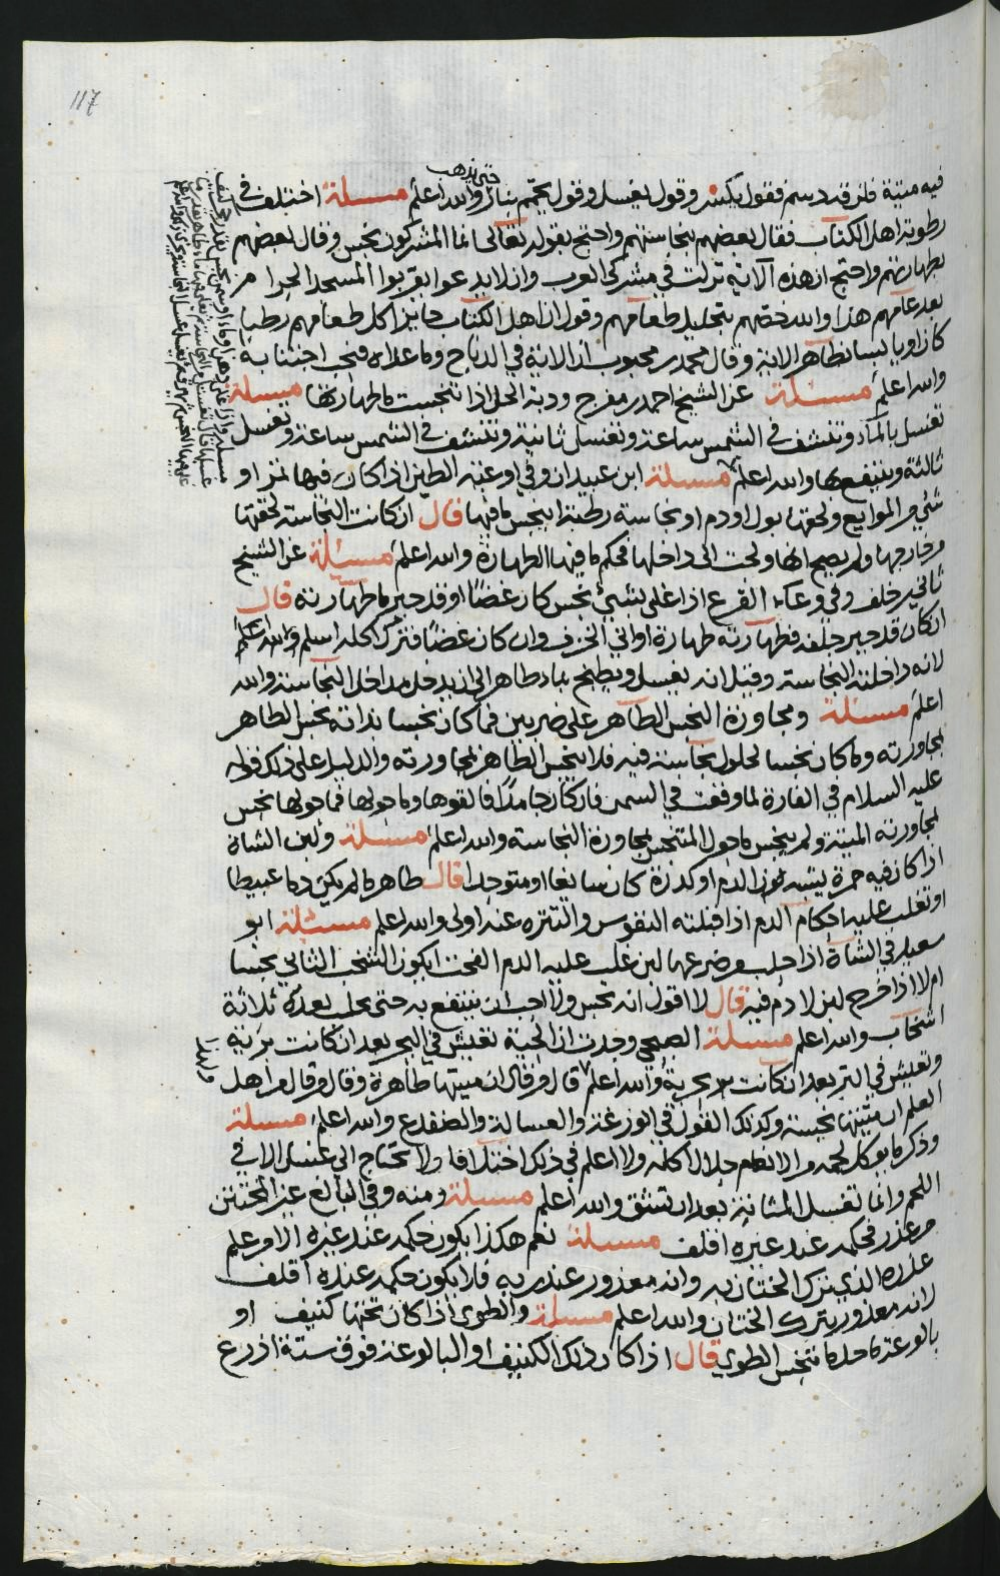 حتى يذهب
فيه ميتة فلن قد دسم فقول يكسر وقول يغسل وقول يحمم بنار والله اعلم مسئلة اختلف في
رطوبة اهل الكتاب فقال بعضهم بنجاستهم واحتج بقوله تعالى انما المشركون نجس وقال بعضهم
بطهارتهم واحتج ان هذه الآية نزلت في مشركي العرب وان لا يدعوا يقربوا المسجد الحرام
بعد عامهم هذا والله خصهم بتحليل طعامهم وقول ان اهل الكتاب جايز اكل طعامهم رطبا
كان او يابسا لظاهر الاية وقال محمد بن محبوب ان الاية في الذبايح وما عداه فيجب اجتنابه
والله اعلم مسئلة عن الشيخ احمد بن مفرج ودبة الحل اذا تنجست ما طهارتها مسئلة
تغسل بالماء وتنشف في الشمس ساعة وتغسل ثانية وتنشف في الشمس ساعة وتغسل
ثالثة وينتفع بها والله اعلم مسئلة ابن عبيدان وفي اوعية الطين اذا كان فيها تمر او
شيء من الموايع ولحقها بول او دم او نجاسة رطبة اينجس ما فيها قال ان كانت النجاسة لحقتها
من خارجها ولم يصح انها ولجت الى داخلها فحكم ما فيها الطهارة والله اعلم مسئلة عن الشيخ
ثاني بن خلف وفي وعاء القرع اذا غلي بشيء نجس كان غضا او قد جبر ما طهارته قال
ان كان قد جبر جلفه فطهارته طهارة اواني الخزف وان كان غضا فترك اكله اسلم والله اعلم
لانه داخلته النجاسة وقيل انه يغسل ويطبخ بماء طاهر الى ان يدخل مداخل النجاسة والله
اعلم مسئلة ومجاورة النجس الطاهر على ضربين فما كان نجسا بذاته نجس الطاهر
بمجاورته وما كان نجسا لحلول نجاسة فيه فلا ينجس الطاهر بمجاورته والدليل على ذلك قوله
عليه السلام في الفارة لما وقعت في السمن فان كان جامدا فالقوها وما حولها فما حولها نجس
لمجاورته الميتة ولم ينجس ما حول المتنجس بمجاورة النجاسة والله اعلم مسئلة ولبن الشاة
اذا كان فيه حمرة يشبه لون الدم او كدرة كان سايغا او متوجدا قال طاهر ما لم يكن دما عبيطا
او تغلب عليه احكام الدم اذا قبلته النفوس والتنزه عنه اولى والله اعلم مسئلة ابو
سعيد في الشاة اذا حلب من ضرعها لبن غلب عليه الدم البحت ايكون الشخب الثاني نجسا
ام لا اذا خرج لبن لا دم فيه قال لا اقول انه نجس ولا احب ان ينتفع به حتى يحلب بعده ثلاثة
اشخاب والله اعلم مسئلة الصبحي وجدت ان الحية تعيش في البحر بعد ان كانت برية
وتعيش في البر بعد ان كانت بحرية والله اعلم قال من قال ان ميتتها طاهرة وقال من قال من اهل
العلم ان ميتتها نجسة وكذلك القول في الوزغة والعسالة والضفدع والله اعلم مسئلة
وذكر ما يوكل لحمه من الانعام حلال اكله ولا اعلم في ذلك اختلافا ولا يحتاج الى غسل الا في
اللحم وانما تغسل المثانة بعد ان تشق والله اعلم مسئلة ومنه وفي البالغ غير المختتن
من عذر فحكمه عند غيره اقلف مسئلة نعم هكذا يكون حكمه عند غيره الا من علم
عذره الذي ترك الختان به وانه معذور عند ربه فلا يكون حكمه عنده اقلف
لانه معذور بترك الختان والله اعلم مسئلة والطوي اذا كان تحتها كنيف او
بالوعة ما حد ما تنجس الطوي قال اذا كان ذلك الكنيف او البالوعة فوق ستة اذرع